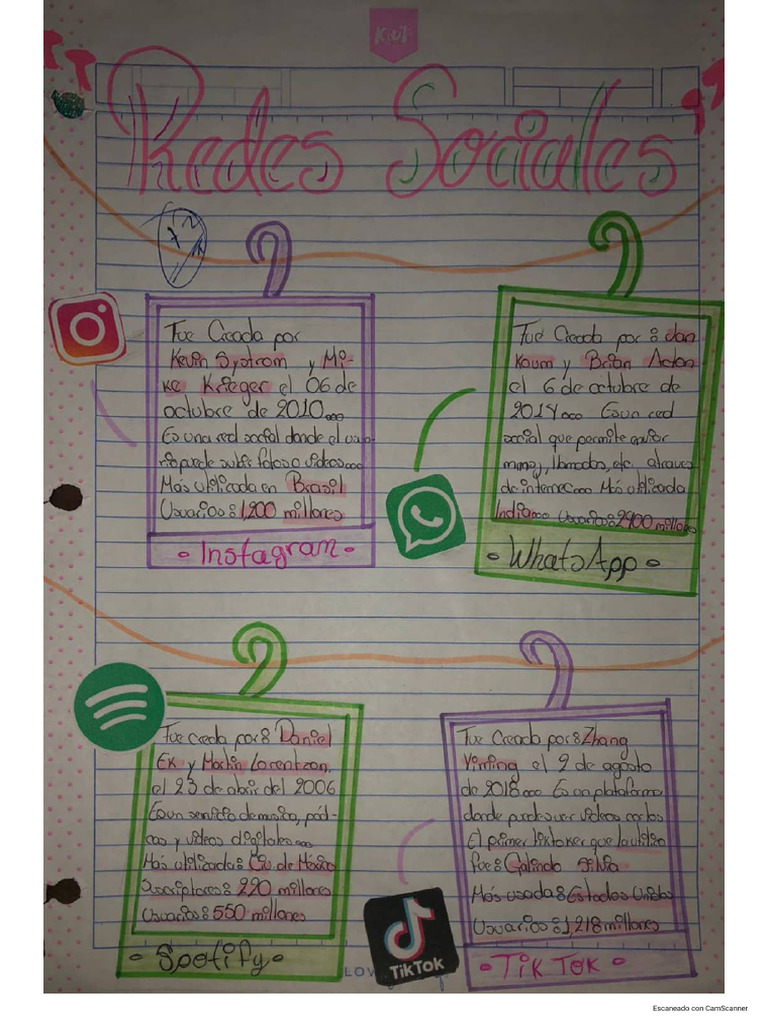 Kiut
Redes Sociales
Fue Creada por
Kevin Systrom y Mi-
ke Krieger el 06 de
octubre de 2010...
Es una red social donde el usua-
rio puede subir fotos o videos...
Más utilizada en Brasil
Usuarios: 1,200 millones
• Instagram •
Fue Creada por: Jan
Koum y Brian Acton
el 6 de octubre de
2014... Es un red
social que permite enviar
msng, llamadas, etc. atraves
de internet... Más utilizada
India... Usuarios: 2400 millones
• WhatsApp •
Fue creda por: Daniel
Ek y Martin Lorentzon.
el 23 de abril del 2006
Es un servicio de musica, pód-
cas y videos digitales...
Más utilizada: Ciu de Mexico
Suscriptores: 220 millones
Usuarios: 550 millones
• Spotify •
Fue Creada por: Zhang
Yiming el 9 de agosto
de 2018... Es un plataforma
donde puedes ver videos cortos
El primer tiktoker que la utilizo
fue: Galindo Silvia
Más usada: Estados Unidos
Usuarios: 1,218 millones
TikTok
• TIK TOK •
Escaneado con CamScanner